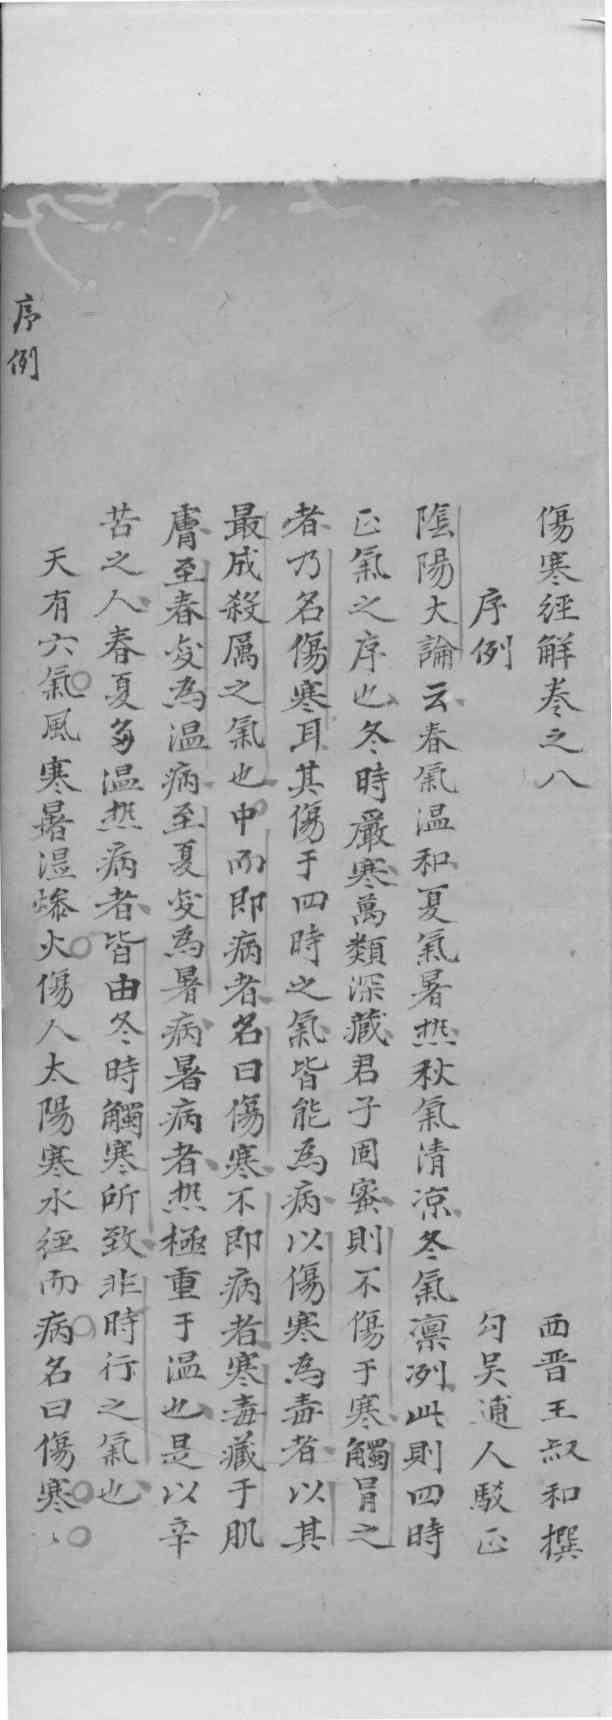 傷寒經解卷之八
西晋王叔和撰
序例
勾吴逋人駁正
陰陽大論云春氣温和夏氣暑热秋氣清凉冬氣凛冽此則四時
正氣之序也冬時嚴寒萬類深藏君子固密則不傷于寒觸冒之
者乃名傷寒耳其傷于四時之氣皆能為病以傷寒為毒者以其
最成殺厲之氣也中而即病者名曰傷寒不即病者寒毒藏于肌
膚至春变為温病至夏变為暑病暑病者热極重于温也是以辛
苦之人春夏多温热病者皆由冬時觸寒所致非時行之氣也
天有六氣風寒暑湿燥火傷人太陽寒水經而病名曰傷寒、
序例